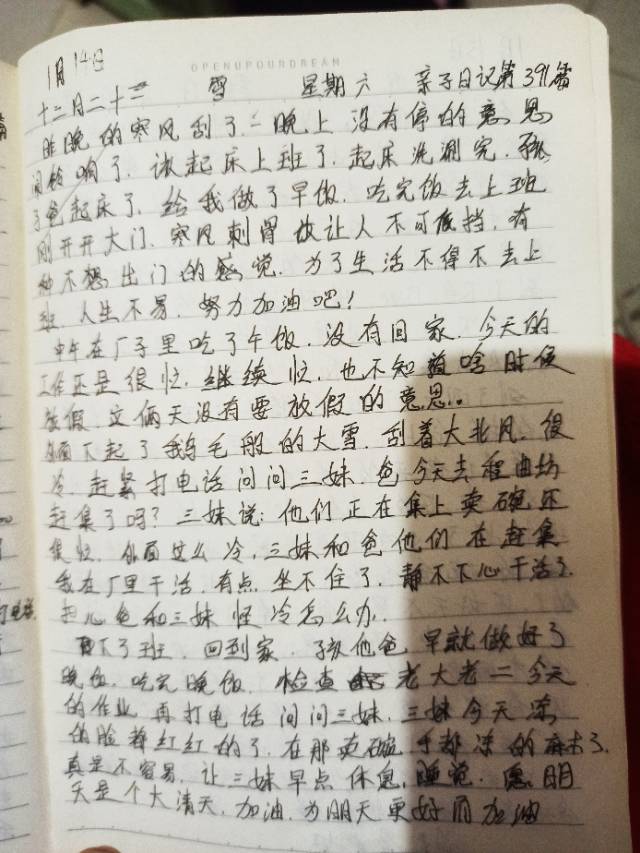 1月14日
OPENUPOURDREAM
十二月二十三 雪 星期六 亲子日记第391篇
昨晚的寒风刮了一晚上没有停的意思
闹铃响了.该起床上班了.起床洗漱完.孩
子爸起床了.给我做了早饭.吃完饭去上班
刚开开大门.寒风刺骨故让人不可抵挡.有
种不想出门的感觉.为了生活不得不去上
班.人生不易.努力加油吧!
中午在厂子里吃了午饭.没有回家.今天的
工作还是很忙.继续忙.也不知道啥时候
放假.这俩天没有要放假的意思..
外面下起了鹅毛般的大雪.刮着大北风.很
冷.赶紧打电话问问三妹.爸今天去程曲坊
赶集了吗?三妹说:他们正在集上卖碗还
很忙.外面这么冷.三妹和爸他们在赶集
我在厂里干活.有点坐不住了.静不下心干活了.
担心爸和三妹怪冷怎么办.
下了班.回到家.孩他爸早就做好了
晚饭.吃完晚饭.检查老大老二今天
的作业再打电话问问三妹.三妹今天冻
的脸都红红的了.在那卖碗手都冻的麻木了.
真是不容易.让三妹早点休息,睡觉.愿明
天是个大清天.加油.为明天更好而加油